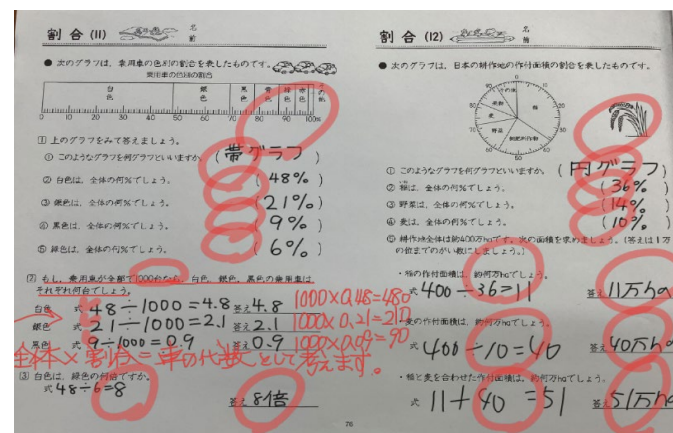 割合 (11)
名前
● 次のグラフは、乗用車の色別の割合を表したものです。
乗用車の色別の割合
白色 銀色 黒色 青色 緑色 赤色 その他
0 10 20 30 40 50 60 70 80 90 100%
① 上のグラフをみて答えましょう。
① このようなグラフを何グラフといいますか。 (帯グラフ)
② 白色は、全体の何%でしょう。 (48%)
③ 銀色は、全体の何%でしょう。 (21%)
④ 黒色は、全体の何%でしょう。 (9%)
⑤ 緑色は、全体の何%でしょう。 (6%)
② もし、乗用車が全部で1000台なら、白色、銀色、黒色の乗用車は
それぞれ何台でしょう。
白色 式 48÷1000=4.8 答え 4.8 1000×0.48=480
銀色 式 21÷1000=2.1 答え 2.1 1000×0.21=210
黒色 式 9÷1000=0.9 答え 0.9 1000×0.09=90
全体×割合=車の代数として考えます。
③ 白色は、緑色の何倍ですか。
式 48÷6=8
答え 8倍
割合 (12)
名前
● 次のグラフは、日本の耕地の作付面積の割合を表したものです。
0 10 20 30 40 50 60 70 80 90
その他 稲 果樹 麦 野菜 飼肥料作物
① このようなグラフを何グラフといいますか。 (円グラフ)
② 稲は、全体の何%でしょう。 (36%)
③ 野菜は、全体の何%でしょう。 (14%)
④ 麦は、全体の何%でしょう。 (10%)
⑤ 耕作地全体は約400万haです。次の面積を求めましょう。(答えは1万
の位までのがい数にしましょう。)
・稲の作付面積は、約何万haでしょう。
式 400÷36=11 答え 11万ha
・麦の作付面積は、約何万haでしょう。
式 400÷10=40 答え 40万ha
・稲と麦を合わせた作付面積は、約何万haでしょう。
式 11+40=51 答え 51万ha
76